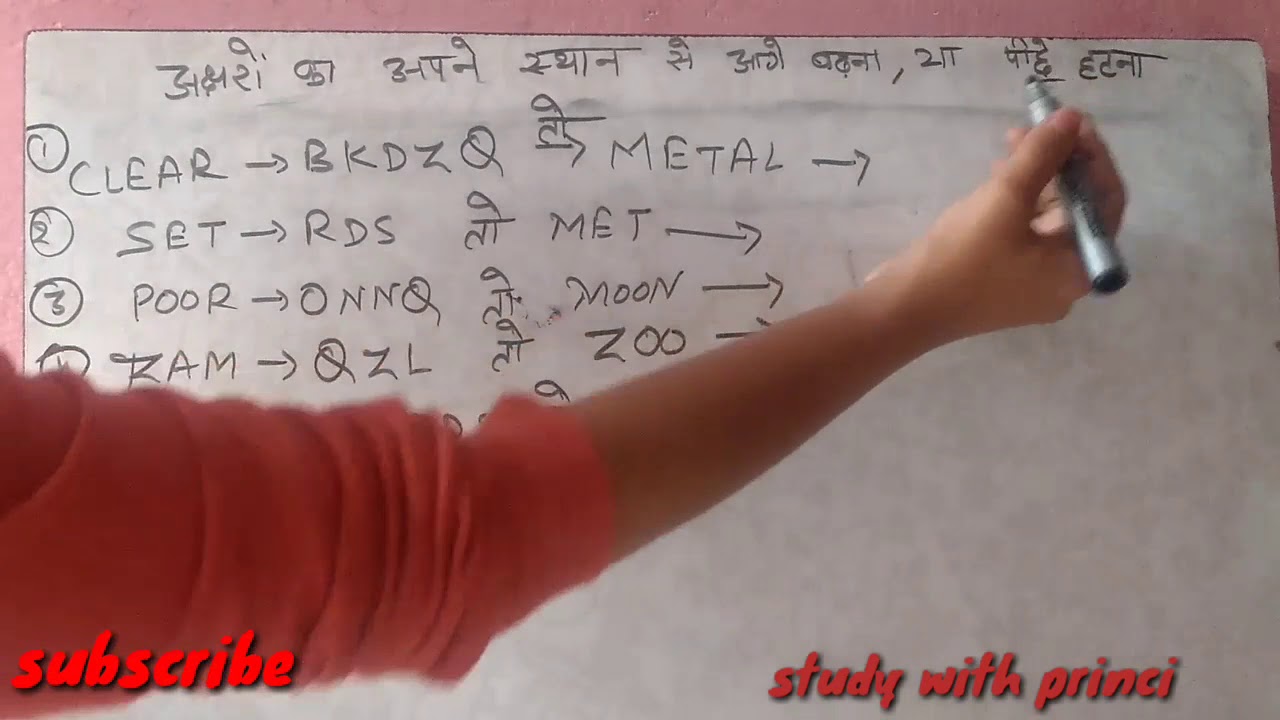 अक्षरों का अपने स्थान से आगे बढ़ना, या पीछे हटना
① CLEAR → BKDZQ तो → METAL →
② SET → RDS तो MET →
③ POOR → ONNQ तो MOON →
RAM → QZL तो ZOO →
subscribe
study with princi